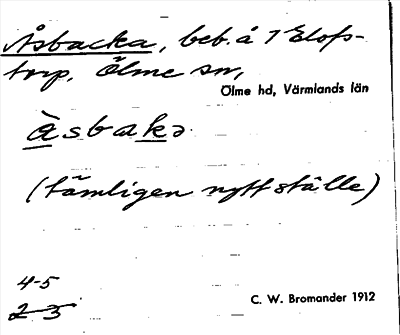 Åsbacka, beb. å 7 Elofs-
torp, Ölme sn,
Ölme hd, Värmlands län
àsbakə
(tämligen nytt ställe)
4-5
2-3
C. W. Bromander 1912